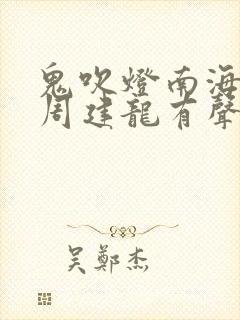 鬼吹燈南海
周建龍有聲
吴鄭杰